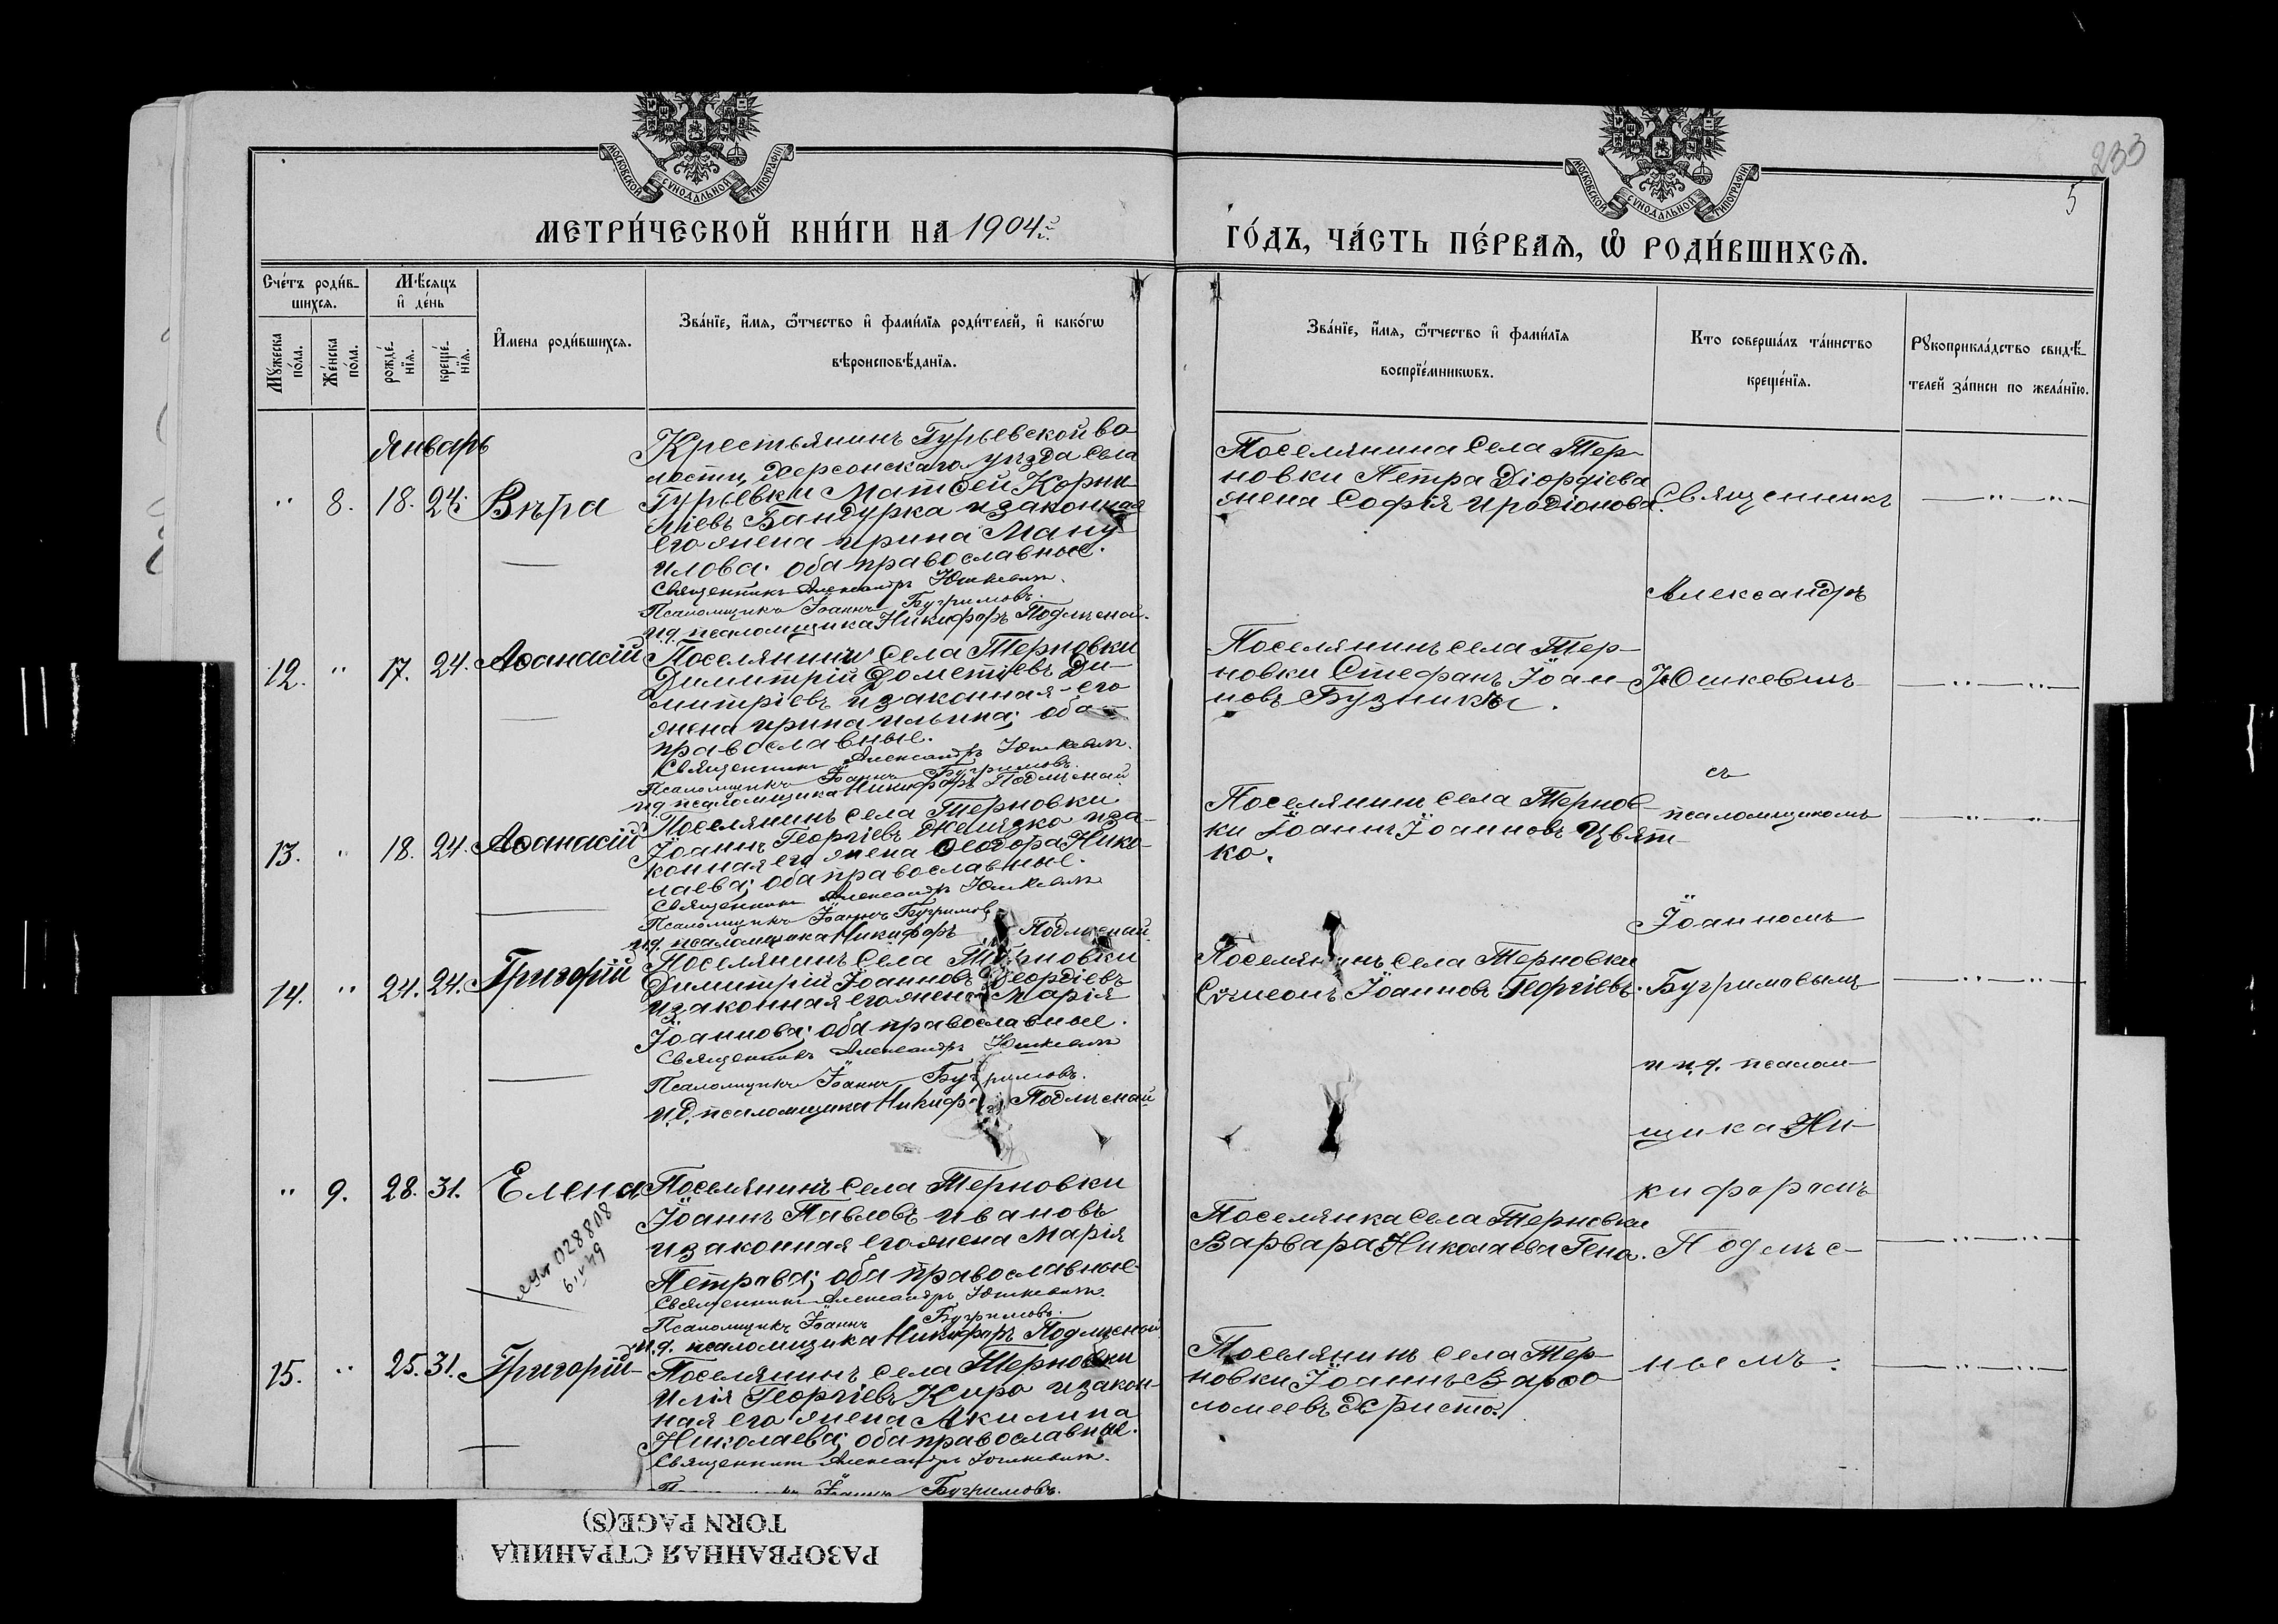 233
5
МОСКОВСКОЙ СѴНОДАЛЬНОЙ ТИПОГРАФІИ
МОСКОВСКОЙ СѴНОДАЛЬНОЙ ТИПОГРАФІИ
МЕТРИ́ЧЕСКОЙ КНИ́ГИ НА 1904й.
ГО́ДЪ, ЧА́СТЬ ПЕ́РВАЯ, Ѽ РОДИ́ВШИХСЯ.
Сче́тъ роди́в-
шихся.
Мꙋжеска по́ла.
Же́нска по́ла.
Мѣсяцъ
и҆ де́нь
рожде́-
нїя.
креще́-
нїя.
И҆мена роди́вшихся.
Зва́нїе, и҆́мя, ѻ҆́тчество и҆ фами́лїя роди́телей, и҆ како́гѡ
вѣроисповѣ́данїя.
Зва́нїе, и҆́мя, ѻ҆́тчество и҆ фами́лїя
воспрїе́мникѡвъ.
Кто соверша́лъ та́инство
креще́нїя.
Рꙋкоприкла́дство свидѣ-
телей за́писи по жела́нїю.
Январь
" 8. 18. 24. Вѣра
Крестьянинъ Гурьевской во
лости, Херсонскаго уѣзда села
Гурьевки Матѳей Корни-
ліевъ Бандурка и законная
его жена Ирина Ману-
илова. оба православные.
Священникъ Александръ Юшкевичъ.
Псаломщикъ Іоаннъ Бугримовъ.
и.д. псаломщика Никифоръ Подлѣсный.
Поселянина села Тер-
новки Петра Діордіева
жена Софія Иродіонова.
Священникъ
Александръ
12. " 17. 24. Аѳанасій
Поселянинъ села Терновки
Димитрій Дометіевъ Ди-
митріевъ и законная его
жена Ирина Ильина; оба
православные.
Священникъ Александръ Юшкевичъ.
Псаломщикъ Іоаннъ Бугримовъ.
и.д. псаломщика Никифоръ Подлѣсный
Поселянинъ села Тер-
новки Стефанъ Іоан-
новъ Бузники.
Юшкевичъ
съ
13. " 18. 24. Аѳанасій
Поселянинъ села Терновки
Іоаннъ Георгіевъ Желязко и за-
конная его жена Ѳеодора Нико-
лаева; оба православные.
Священникъ Александръ Юшкевичъ
Псаломщикъ Іоаннъ Бугримовъ
и.д. псаломщика Никифоръ Подлѣсный.
Поселянинъ села Тернов-
ки Іоаннъ Іоанновъ Цвят-
ко.
псаломщикомъ
Іоанномъ
14. " 24. 24. Григорій
Поселянинъ села Терновки
Димитрій Іоанновъ Георгіевъ
и законная его жена Марія
Іоаннова; оба православные.
Священникъ Александръ Юшкевичъ
Псаломщикъ Іоаннъ Бугримовъ.
и.д. псаломщика Никифоръ Подлѣсный
Поселянинъ села Терновки
Сѵмеонъ Іоанновъ Георгіевъ.
Бугримовымъ
и и.д. псалом-
щика Ни-
" 9. 28. 31. Елена
028808
Поселянинъ села Терновки
Іоаннъ Павловъ Ивановъ
и законная его жена Марія
Петрова; оба православные
Священникъ Александръ Юшкевичъ.
Псаломщикъ Іоаннъ Бугримовъ.
и.д. псаломщика Никифоръ Подлѣсный
Поселянка села Терновки
Варвара Николаева Гена.
кифоромъ
Подлѣс-
15. " 25. 31. Григорій
Поселянинъ села Терновки
Илія Георгіевъ Киро и закон-
ная его жена Акилина
Николаева; оба православные.
Священникъ Александръ Юшкевичъ.
Іоаннъ Бугримовъ.
Поселянинъ села Тер-
новки Іоаннъ Варѳо-
ломеевъ Христо.
нымъ.
РАЗОРВАННАЯ СТРАНИЦА
TORN PAGE(S)